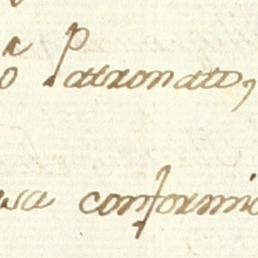 Patronato,
conformi